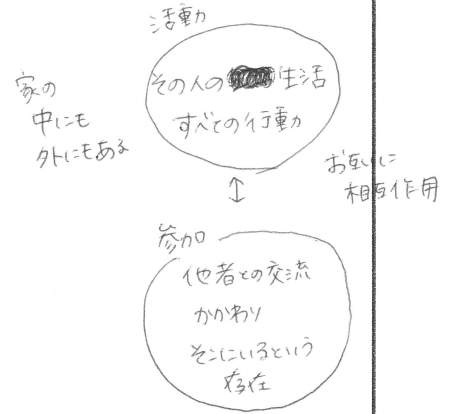 活動
その人の 生活
すべての行動
家の
中にも
外にもある
お互いに
相互作用
参加
他者との交流
かかわり
そこにいるという
存在